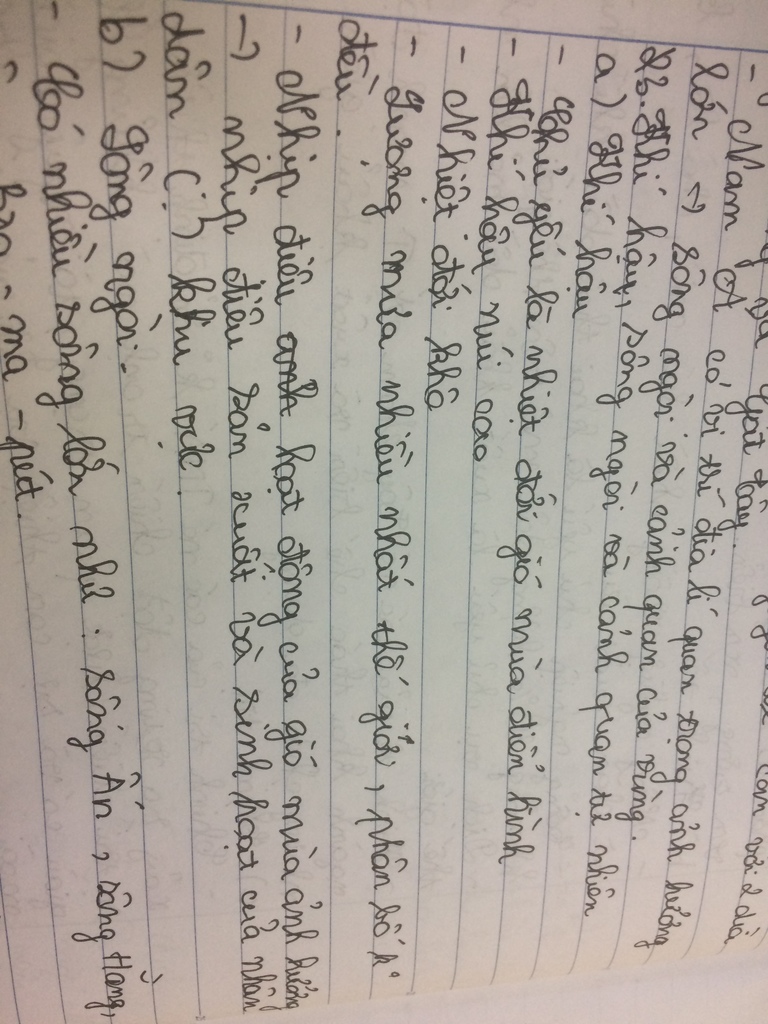 và gát tây. cạn với 2 địa
- Nam Á có vị trí địa lí quan trọng ảnh hưởng
lớn -> sông ngòi và cảnh quan của vùng.
2. Khí hậu, sông ngòi và cảnh quan tự nhiên
a) Khí hậu
- Chủ yếu là nhiệt đới gió mùa điển hình
- Khí hậu núi cao
- Nhiệt đới khô
- Lượng mưa nhiều nhất thế giới, phân bố k°
đều.
- Nhịp điệu hoạt động của gió mùa ảnh hưởng
-> nhịp điệu sản xuất và sinh hoạt của nhân
dân (:) khu vực.
b) Sông ngòi.
- Có nhiều sông lớn như: sông Ấn, sông Hằng,
ma - pút.